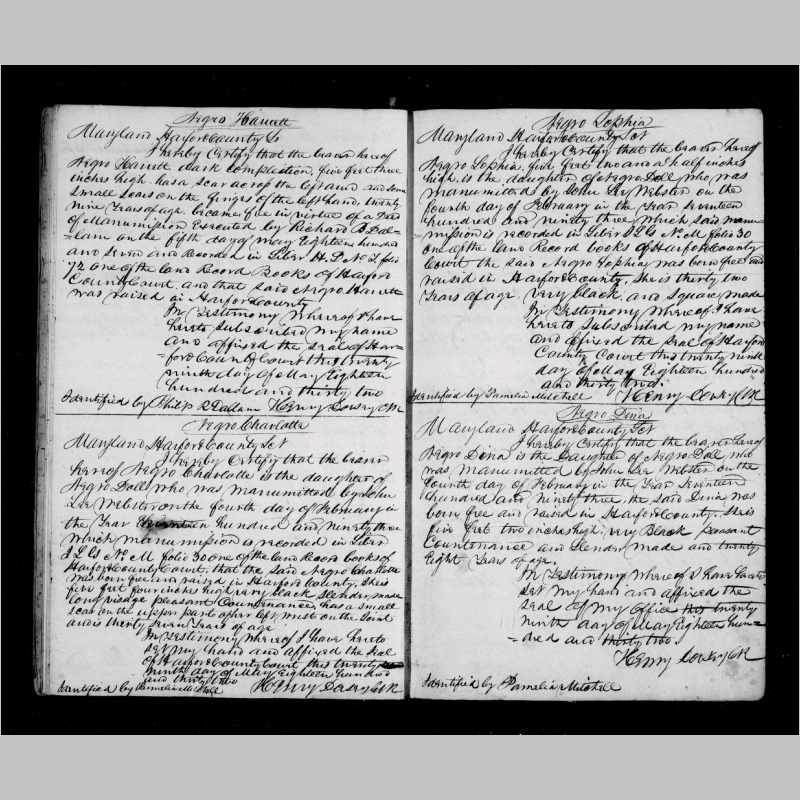 Negro Harriett
Maryland Harford County Sc
I hereby Certify that the bearer hereof
Negro Harriett dark complection, five feet three
inches high has a scar across the left and some
small scars on the fingers of the left hand, twenty
nine years of age, became free in virtue of a Deed
of Manumission Executed by Richard B. Dal=
=lam on the fifth day of May Eighteen hundred
and seven and Recorded in Liber H. L. No. folio
72 one of the land Record Books of Harford
County Court, and that said Negro Harriett
was raised in Harford County
In Testimony whereof I have
hereto Subscribed my name
and affixed the seal of Har=
=ford County Court this twenty
ninth day of May Eighteen
hundred and thirty two
Identified by Philip R Dallam Henry Dorsey Clk
Negro Charlotte
Maryland Harford County Sct
I hereby Certify that the bearer
hereof Negro Charlotte is the daughter of
Negro Doll who was manumitted by John
Lee Webster on the fourth day of February in
the Year hundred and ninety three
which manumission is recorded in Liber
J L G No. M folio 30 one of the land Record books of
Harford County Court, that the said Negro Charlotte
was born free and raised in Harford County. She is
five feet four inches high very black Slender made
long visage pleasant Countenance, has a small
scar on the upper part of her left wrist on the Joint
and is thirty seven Years of age
In Testimony whereof I have hereto
set my hand and affixed the Seal
of Harford County Court this twenty
ninth day of May Eighteen hundred
and thirty two
Identified by Pamelia Mitchell Henry Dorsey Clk
Negro Sophia
Maryland Harford County Sct
I hereby Certify that the bearer hereof
Negro Sophia, five feet two and a half inches
high, is the daughter of Negro Doll who was
manumitted by John Lee Webster on the
fourth day of February in the Year Seventeen
hundred and ninety three which said manu=
mission is recorded in Liber J L G No. M folio 30
one of the land Record books of Harford County
Court the said Negro Sophia was born free and
raised in Harford County, She is thirty two
Years of age very black, and Square made
In Testimony whereof I have
hereto Subscribed my name
and affixed the seal of Harford
County Court this twenty ninth
day of May Eighteen hundred
and thirty two.
Identified by Pamelia Mitchell Henry Dorsey Clk
Negro Dina
Maryland Harford County Sct
I hereby Certify that the bearer hereof
Negro Dina is the Daughter of Negro Doll who
was manumitted by John Lee Webster on the
fourth day of February in the Year Seventeen
hundred and Ninety three, the said Dina was
born free and raised in Harford County. She is
five feet two inches high, very Black pleasant
Countenance and Slender made and twenty
Eight Years of age.
In Testimony whereof I have hereto
set my hand and affixed the
seal of my office this twenty
ninth day of May Eighteen hun=
=dred and thirty two.
Henry Dorsey Clk
Identified by Pamelia Mitchell